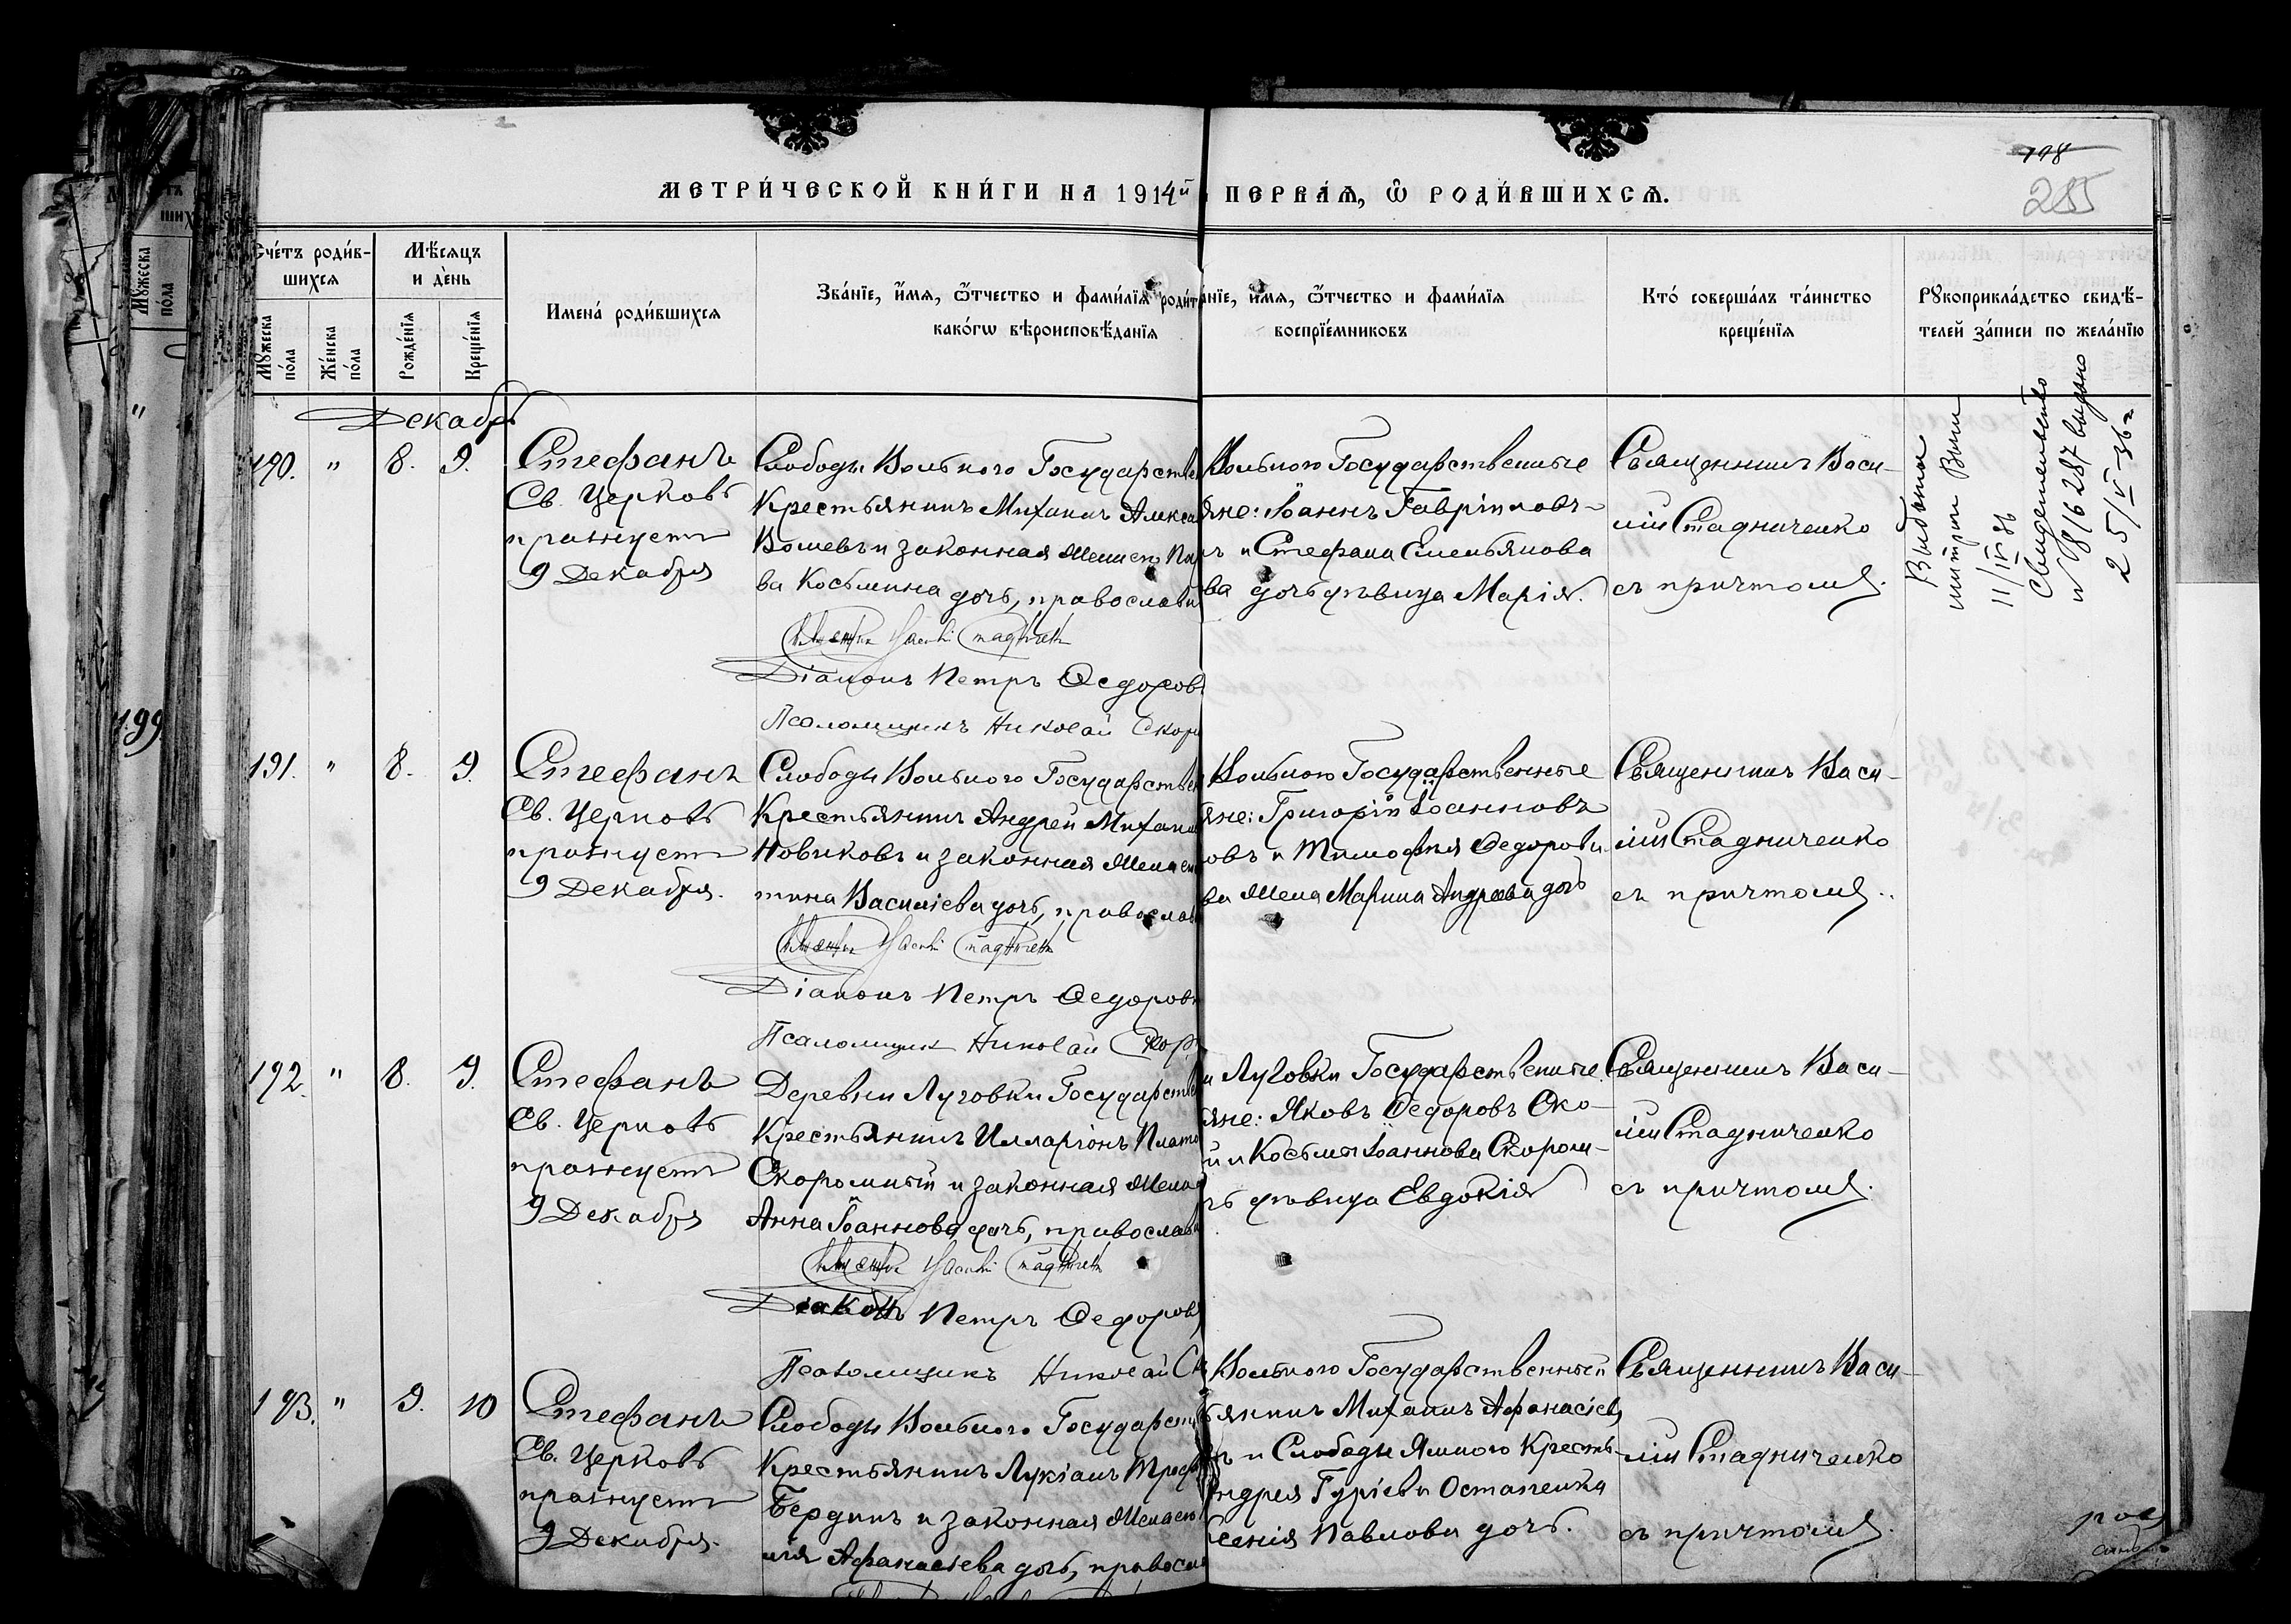 МЕТРИ́ЧЕСКОЙ КНИ́ГИ НА 1914й
ПЕРВА́Ѧ, Ѿ РОДИ́ВШИХСѦ.
118
285
Сче́тъ роди́в-
шихсѧ
Мꙋ́жеска по́ла
Же́нска по́ла
Мѣ́сяцъ
и де́нь
Рожде́нїѧ
Креще́нїѧ
Имена́ роди́вшихсѧ
Зва́нїе, и́мѧ, ѻ́тчество и фами́лїѧ роди́т
како́гѡ вѣроисповѣ́данїѧ
а́нїе, и́мѧ, ѻ́тчество и фами́лїѧ
воспрїе́мниковъ
Кто́ соверша́лъ та́инство
креще́нїѧ
Рꙋкоприкла́дство свидѣ́-
телей за́писи по жела́нїю
199
Декабрь
190. " 8. 9.
Стефанъ
Св. Церковь
празнуетъ
9 Декабря
Слободы Вольного Государствен
Крестьянинъ Михаилъ Алекса
и законная жена его
ва Косьмина дочь, православн
Діаконъ Петръ Ѳедоров
Псаломщикъ Николай Скор
Вольного Государственные
яне: Іоаннъ Гавріиловъ
ъ и Стефана Емельянова
ва дочь дѣвица Марія.
Священникъ Васи-
лій Стадниченко
съ причтомъ.
Выбыта
11/IV 36
Свидетельство
№ 816287 выдано
25/V-36 г
191. " 8. 9.
Стефанъ
Св. Церковь
празнуетъ
9 Декабря.
Слободы Вольного Государствен
Крестьянинъ Андрей Михаи
Новиковъ и законная жена ег
тина Василіева дочь, православ
Діаконъ Петръ Ѳедоров
Псаломщик Николай Скор
Вольного Государственные
яне: Григорій Іоанновъ
овъ и Тимофея Ѳедорова
ва жена Марина Андреева дочь
Священникъ Васи-
лій Стадниченко
съ причтомъ.
192. " 8. 9.
Стефанъ
Св. Церковь
празнуетъ
9 Декабря
Деревни Луговки Государстве
Крестьянинъ Илларіонъ Плато
Скоромный и законная жена
Анна Іоаннова дочь, православ
Діаконъ Петръ Ѳедоров
Псаломщикъ Николай Ск
и Луговки Государственные
яне: Яковъ Ѳедоровъ Ско-
й и Косьмы Іоаннова Скором-
ъ дѣвица Евдокія
Священникъ Васи-
лій Стадниченко
съ причтомъ.
193. " 9. 10
Стефанъ
Св. Церковь
празнуетъ
9 Декабря.
Слободы Вольного Государств
Крестьянинъ Лукіанъ Троф
Бердинъ и законная жена его
Афанасіева дочь, правосла
Вольного Государственный
ьянинъ Михаилъ Афанасіев
ъ и Слободы Ямного Кресть-
ндрея Гуріева Остапенка
сенія Павлова дочь.
Священникъ Васи-
лій Стадниченко
съ причтомъ.